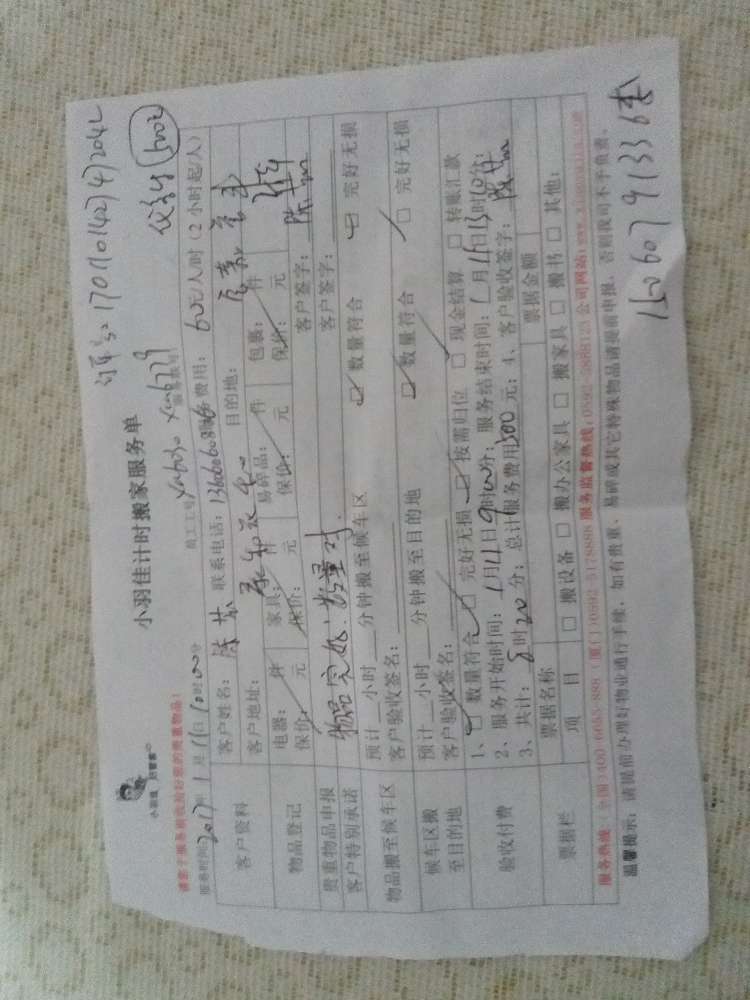 订单号:170110142747204L
小羽佳 好管家
小羽佳计时搬家服务单
请您于服务前收拾好您的贵重物品!
员工工号 服务账号
服务时间 2017年1月11日10时00分
客户资料 客户姓名: 联系电话: 服务费用:60元/人时(2小时起/人)
客户地址: 目的地:
物品登记 电器: 件 家具: 件 易碎品: 件 包裹: 件
保价: 元 保价: 元 保价: 元 保价: 元
贵重物品申报 客户签字:
客户特别承诺 物品完好!数量对. 客户签字:
物品搬至候车区 预计__小时__分钟搬至候车区
客户验收签名: □ 数量符合 □ 完好无损
候车区搬至目的地 预计__小时__分钟搬至目的地
客户验收签名: □ 数量符合 □ 完好无损
验收付费 1、□ 数量符合 □ 完好无损 □ 按需归位 □ 现金结算 □ 转账汇款
2、服务开始时间:1月11日9时00分;服务结束时间:1月16日15时10分
3、共计:8时20分;总计服务费用500元;4、客户验收签字:
票据栏 票据名称 票据金额
项目 □ 搬设备 □ 搬办公家具 □ 搬家具 □ 搬书 □ 其他:
服务热线:全国:400-6065-888(厦门)0592-5178888 服务监督热线:0592-3888123 公司网站:www.xiaoyujia.com
温馨提示:请提前办理好物业通行手续,如有贵重、易碎或其它特殊物品请提前申报,否则我司不予负责。
15060791336李